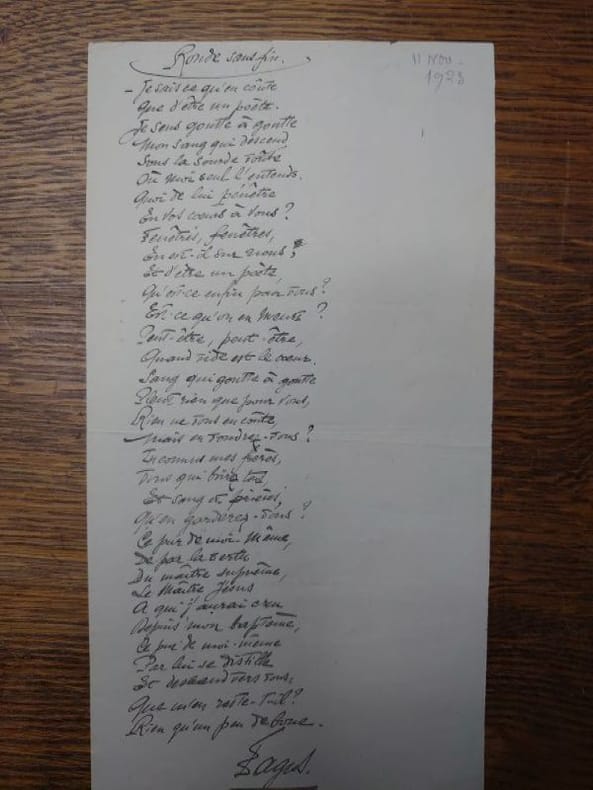 Ronde sans fin.
11 NOV -
1923
- Je sais ce qu'en coûte
Que d'être un poète.
Je sens goutte à goutte
Mon sang qui descend
Sous la sourde voûte
Où moi seul l'entends.
Quoi de lui pénètre
En vos coeurs à vous?
Fenêtres, fenêtres,
En est-il sur nous?
Et d'être un poète,
Qu'est-ce enfin pour vous?
Est-ce qu'on en meurt?
Peut-être, peut-être,
Quand vide est le coeur.
Sang qui goutte à goutte
Pleut rien que pour vous,
Rien ne vous en coûte,
Mais en voudrez-vous?
Inconnus mes frères,
Vous qui
Et sang et prières,
Qu'en garderez-vous?
Ce pur de moi-même,
De par la vertu
Du maître suprême,
Le Maître Jésus
A qui j'aurai cru
Depuis mon baptême,
Ce pur de moi-même
Par lui se distille
Et descend vers vous,
Que m'en reste-t-il?
Rien qu'un peu de boue.
Fagus.